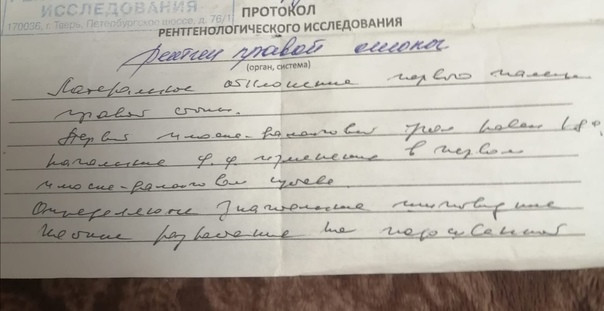 ИССЛЕДОВАНИЯ
170036, г. Тверь, Петербургское шоссе, д. 76/1
ПРОТОКОЛ
РЕНТГЕНОЛОГИЧЕСКОГО ИССЛЕДОВАНИЯ
рентген правой стопы
(орган, система)
Латеральное отклонение первого пальца
правой стопы.
Первый плюсне-фаланговый угол равен 18°
начальные д.д. изменения в первом
плюсне-фаланговом суставе.
Определяются значительные шиповидные
костные разрастания на